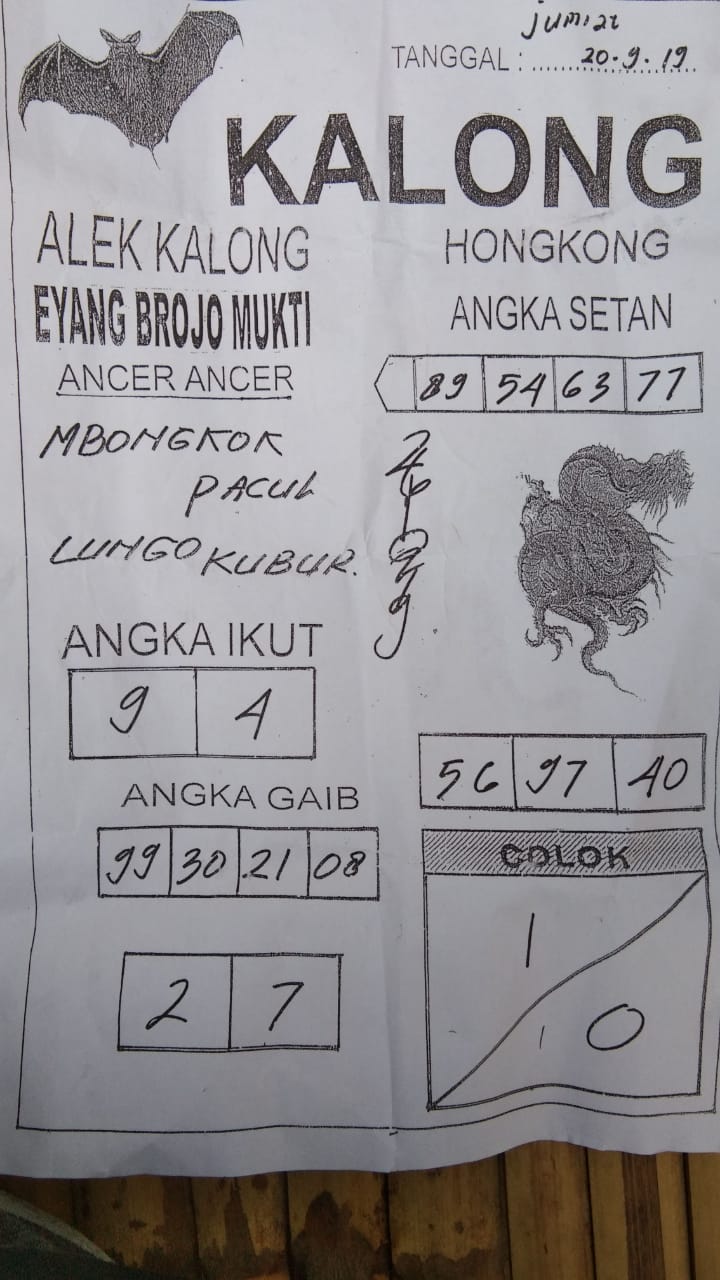 TANGGAL : 20-9-19
KALONG
ALEK KALONG
EYANG BROJO MUKTI
ANCER ANCER
MBONGKOK
PACUL
LUNGO KUBUR.
ANGKA IKUT
9 4
ANGKA GAIB
99 30 21 08
2 7
HONGKONG
ANGKA SETAN
89 54 63 77
56 97 40
COLOK
1
0